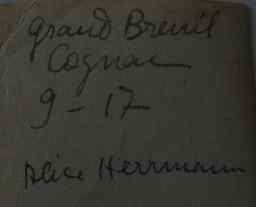 Grand Breuil
Cognac
9-17
Alice Herrmann